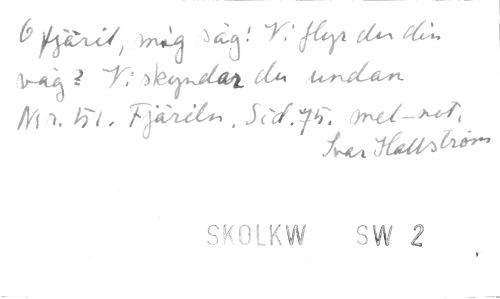 O fjäril, mig säg! Vi flyr du din
väg? Vi skyndar du undan
Nr. 151. Fjäriln. Sid. 75. mel-not.
Ivar Hallström
SKOLKW SW 2